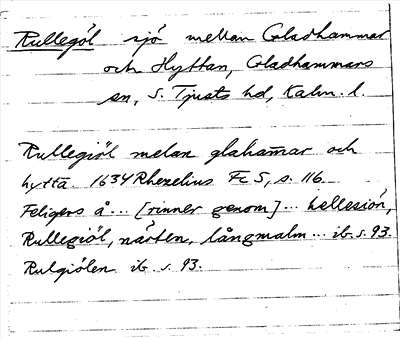 Rullegöl sjö mellan Gladhammar
och Hyttan, Gladhammars
sn, S. Tjusts hd, Kalm. l.
Rullegiöl melan glaham̅ar och
hytta. 1634 Rhezelius Fc 5, s. 116.
Feligers å... [rinner genom]... hellesiön,
Rullegiöl, närten, långmalm... ib. s. 93.
Rulgiölen ib. s. 93.